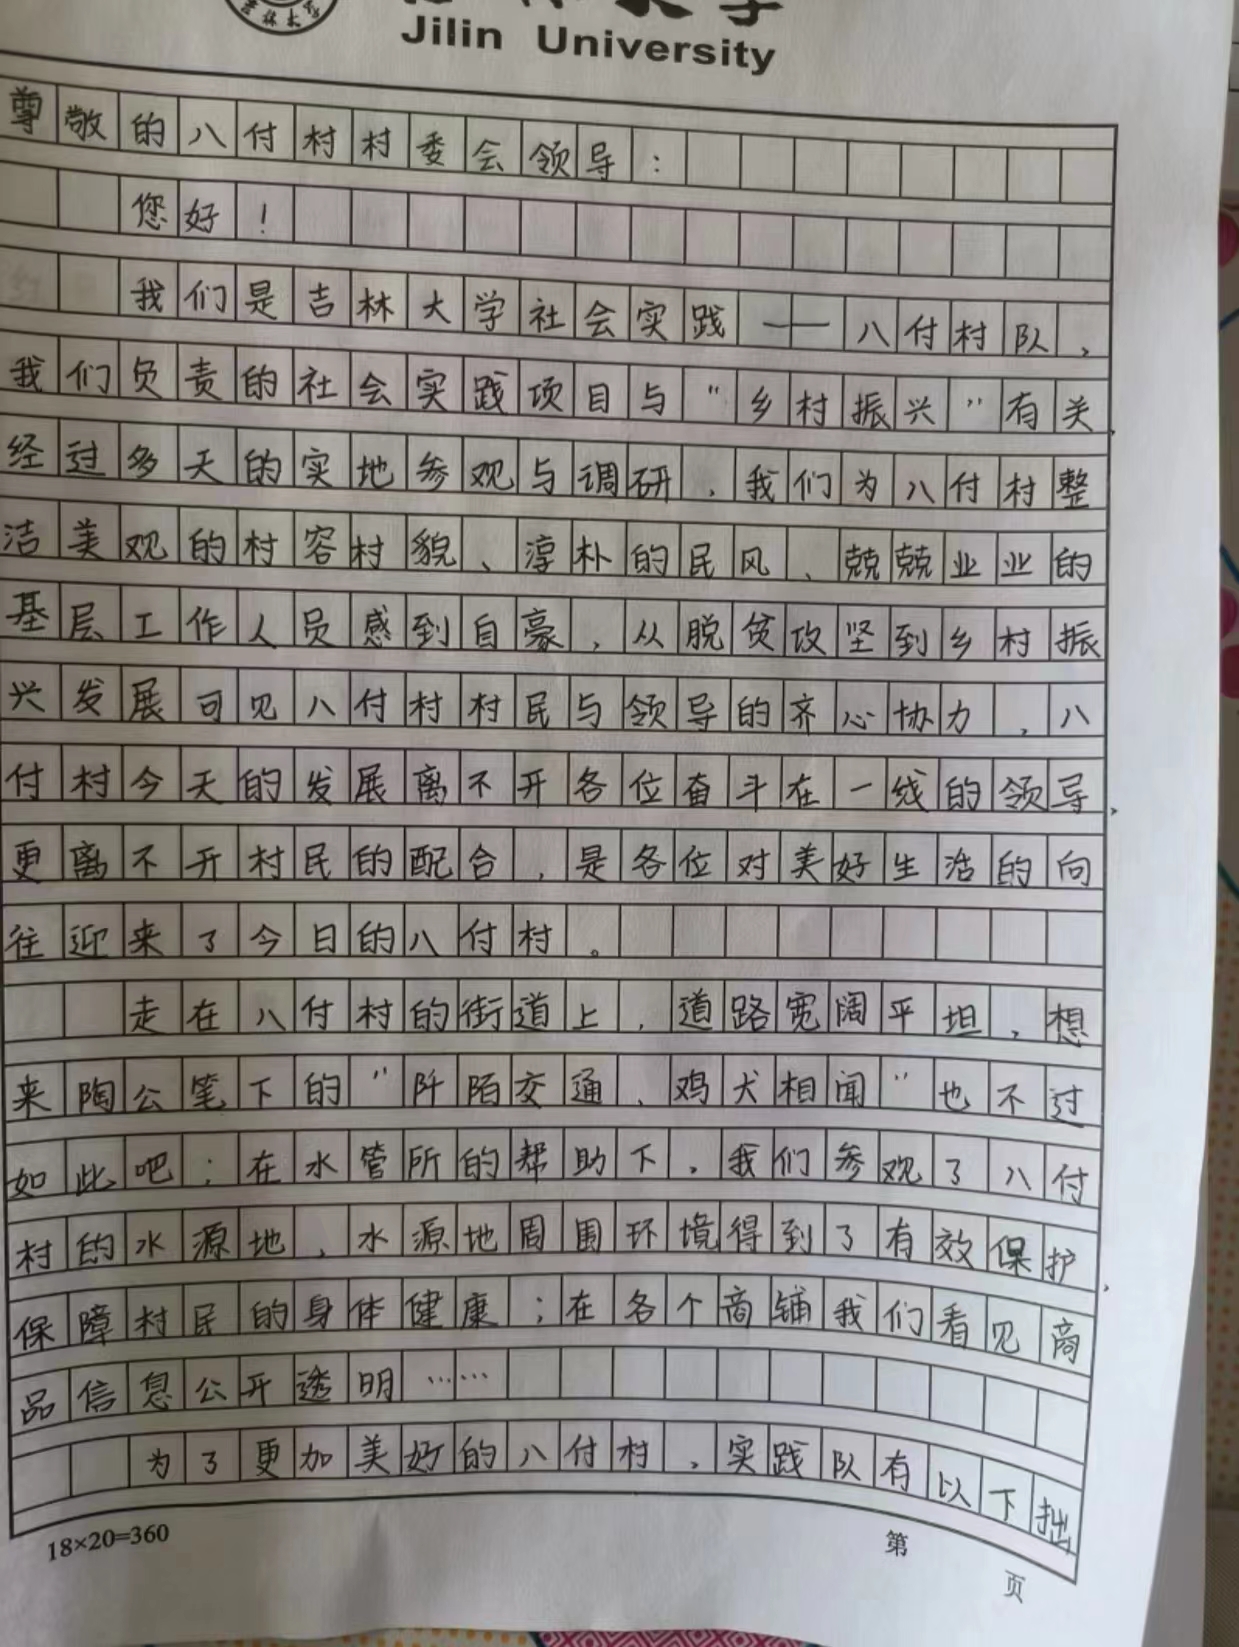 吉林大学
Jilin University
尊敬的八付村村委会领导：
您好！
我们是吉林大学社会实践——八付村队，
我们负责的社会实践项目与“乡村振兴”有关，
经过多天的实地参观与调研，我们为八付村整
洁美观的村容村貌、淳朴的民风、兢兢业业的
基层工作人员感到自豪，从脱贫攻坚到乡村振
兴发展可见八付村村民与领导的齐心协力，八
付村今天的发展离不开各位奋斗在一线的领导，
更离不开村民的配合，是各位对美好生活的向
往迎来了今日的八付村。
走在八付村的街道上，道路宽阔平坦，想
来陶公笔下的“阡陌交通，鸡犬相闻”也不过
如此吧；在水管所的帮助下，我们参观了八付
村的水源地，水源地周围环境得到了有效保护，
保障村民的身体健康；在各个商铺我们看见商
品信息公开透明……
为了更加美好的八付村，实践队有以下拙
18×20=360
第
页